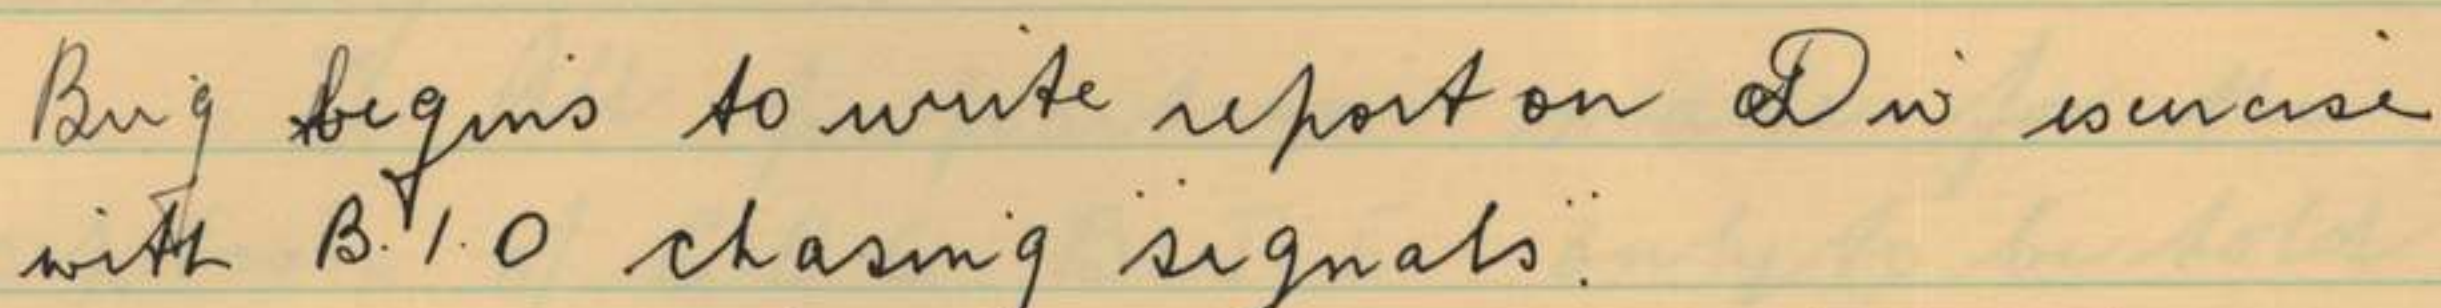 Brig begins to write report on Div exercise
with B.I.O chasing "signals".